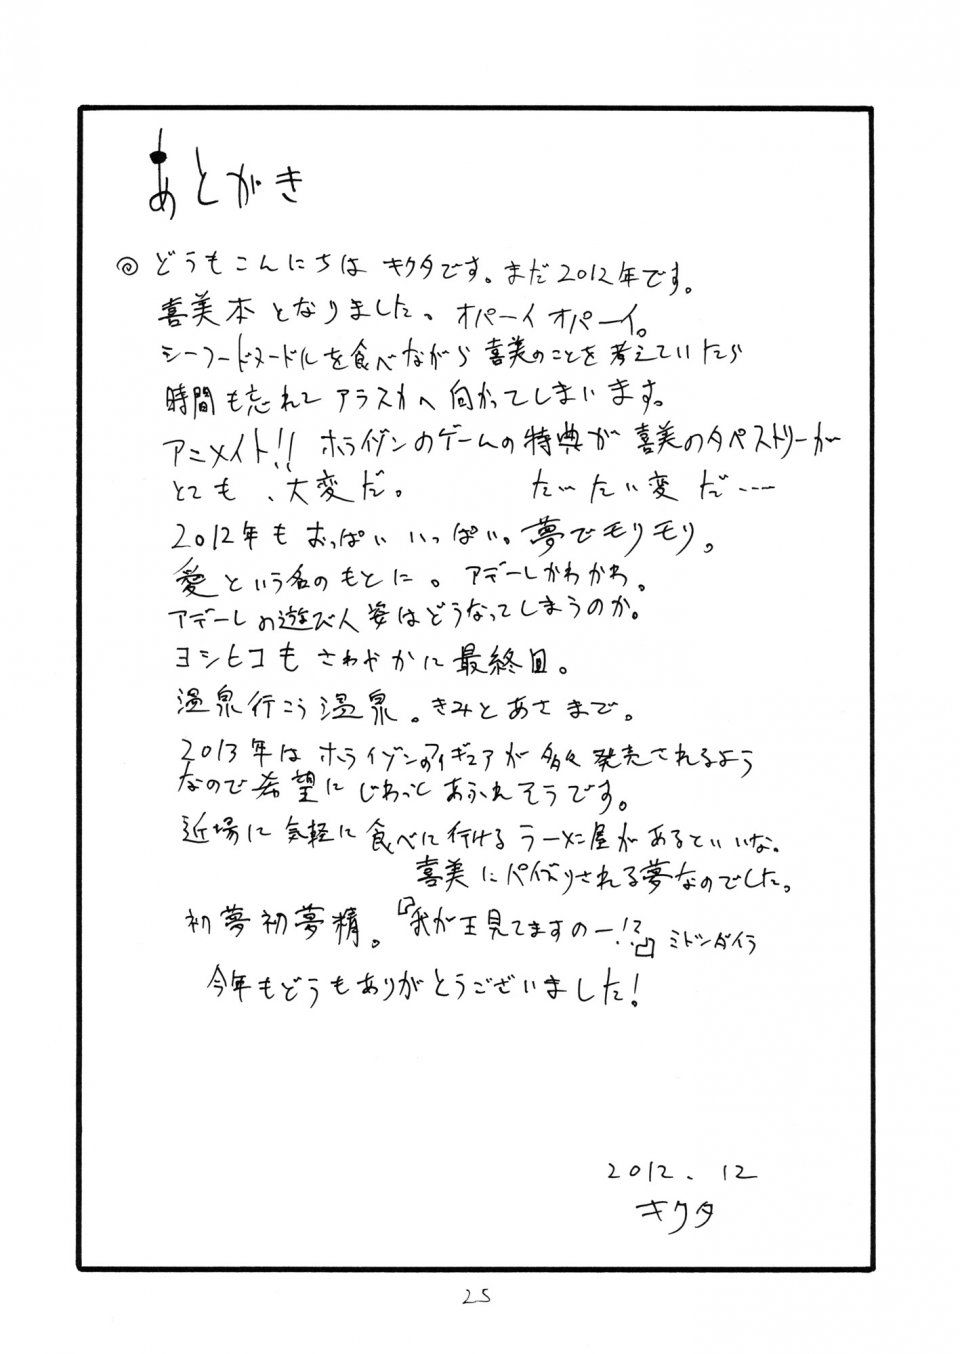 あとがき
◎ どうもこんにちは キクタです。まだ2012年です。
喜美本となりました。オパーイオパーイ。
シーフードヌードルを食べながら喜美のことを考えていたら
時間も忘れて アラスカへ向かってしまいます。
アニメイト!! ホライゾンのゲームの特典が喜美のタペストリーが
とても、大変だ。 たいたい変だ---
2012年もおっぱいいっぱい。夢でモリモリ。
愛という名のもとに。アデーレかわかわ。
アデーレの遊び人姿はどうなってしまうのか。
ヨシヒコもさわやかに最終回。
温泉行こう温泉。きみとあさまで。
2013年はホライゾンのフィギュアが多々発売されるよう
なので希望にじわっとあふれそうです。
近場に気軽に食べに行けるラーメン屋があるといいな。
喜美にパイズリされる夢なのでした。
初夢初夢精。『我が王見てますのー!?』ミトツダイラ
今年もどうもありがとうございました!
2012.12
キクタ
25